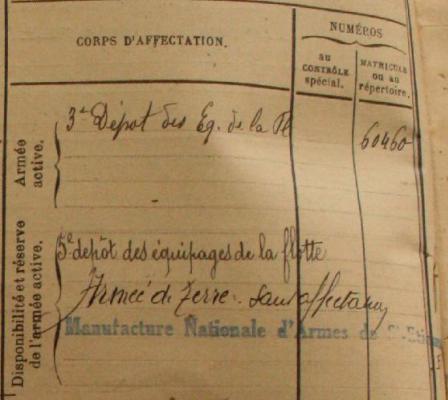 CORPS D'AFFECTATION.
NUMÉROS
au
CONTRÔLE
spécial.
MATRICULE
ou au
répertoire.
Armée
active.
3e Dépot des Eq. de la Fl
60460
Disponibilité et réserve
de l'armée active.
5e depôt des équipages de la flotte
Armée de Terre. Sans affectation
Manufacture Nationale d'Armes de St-Etien